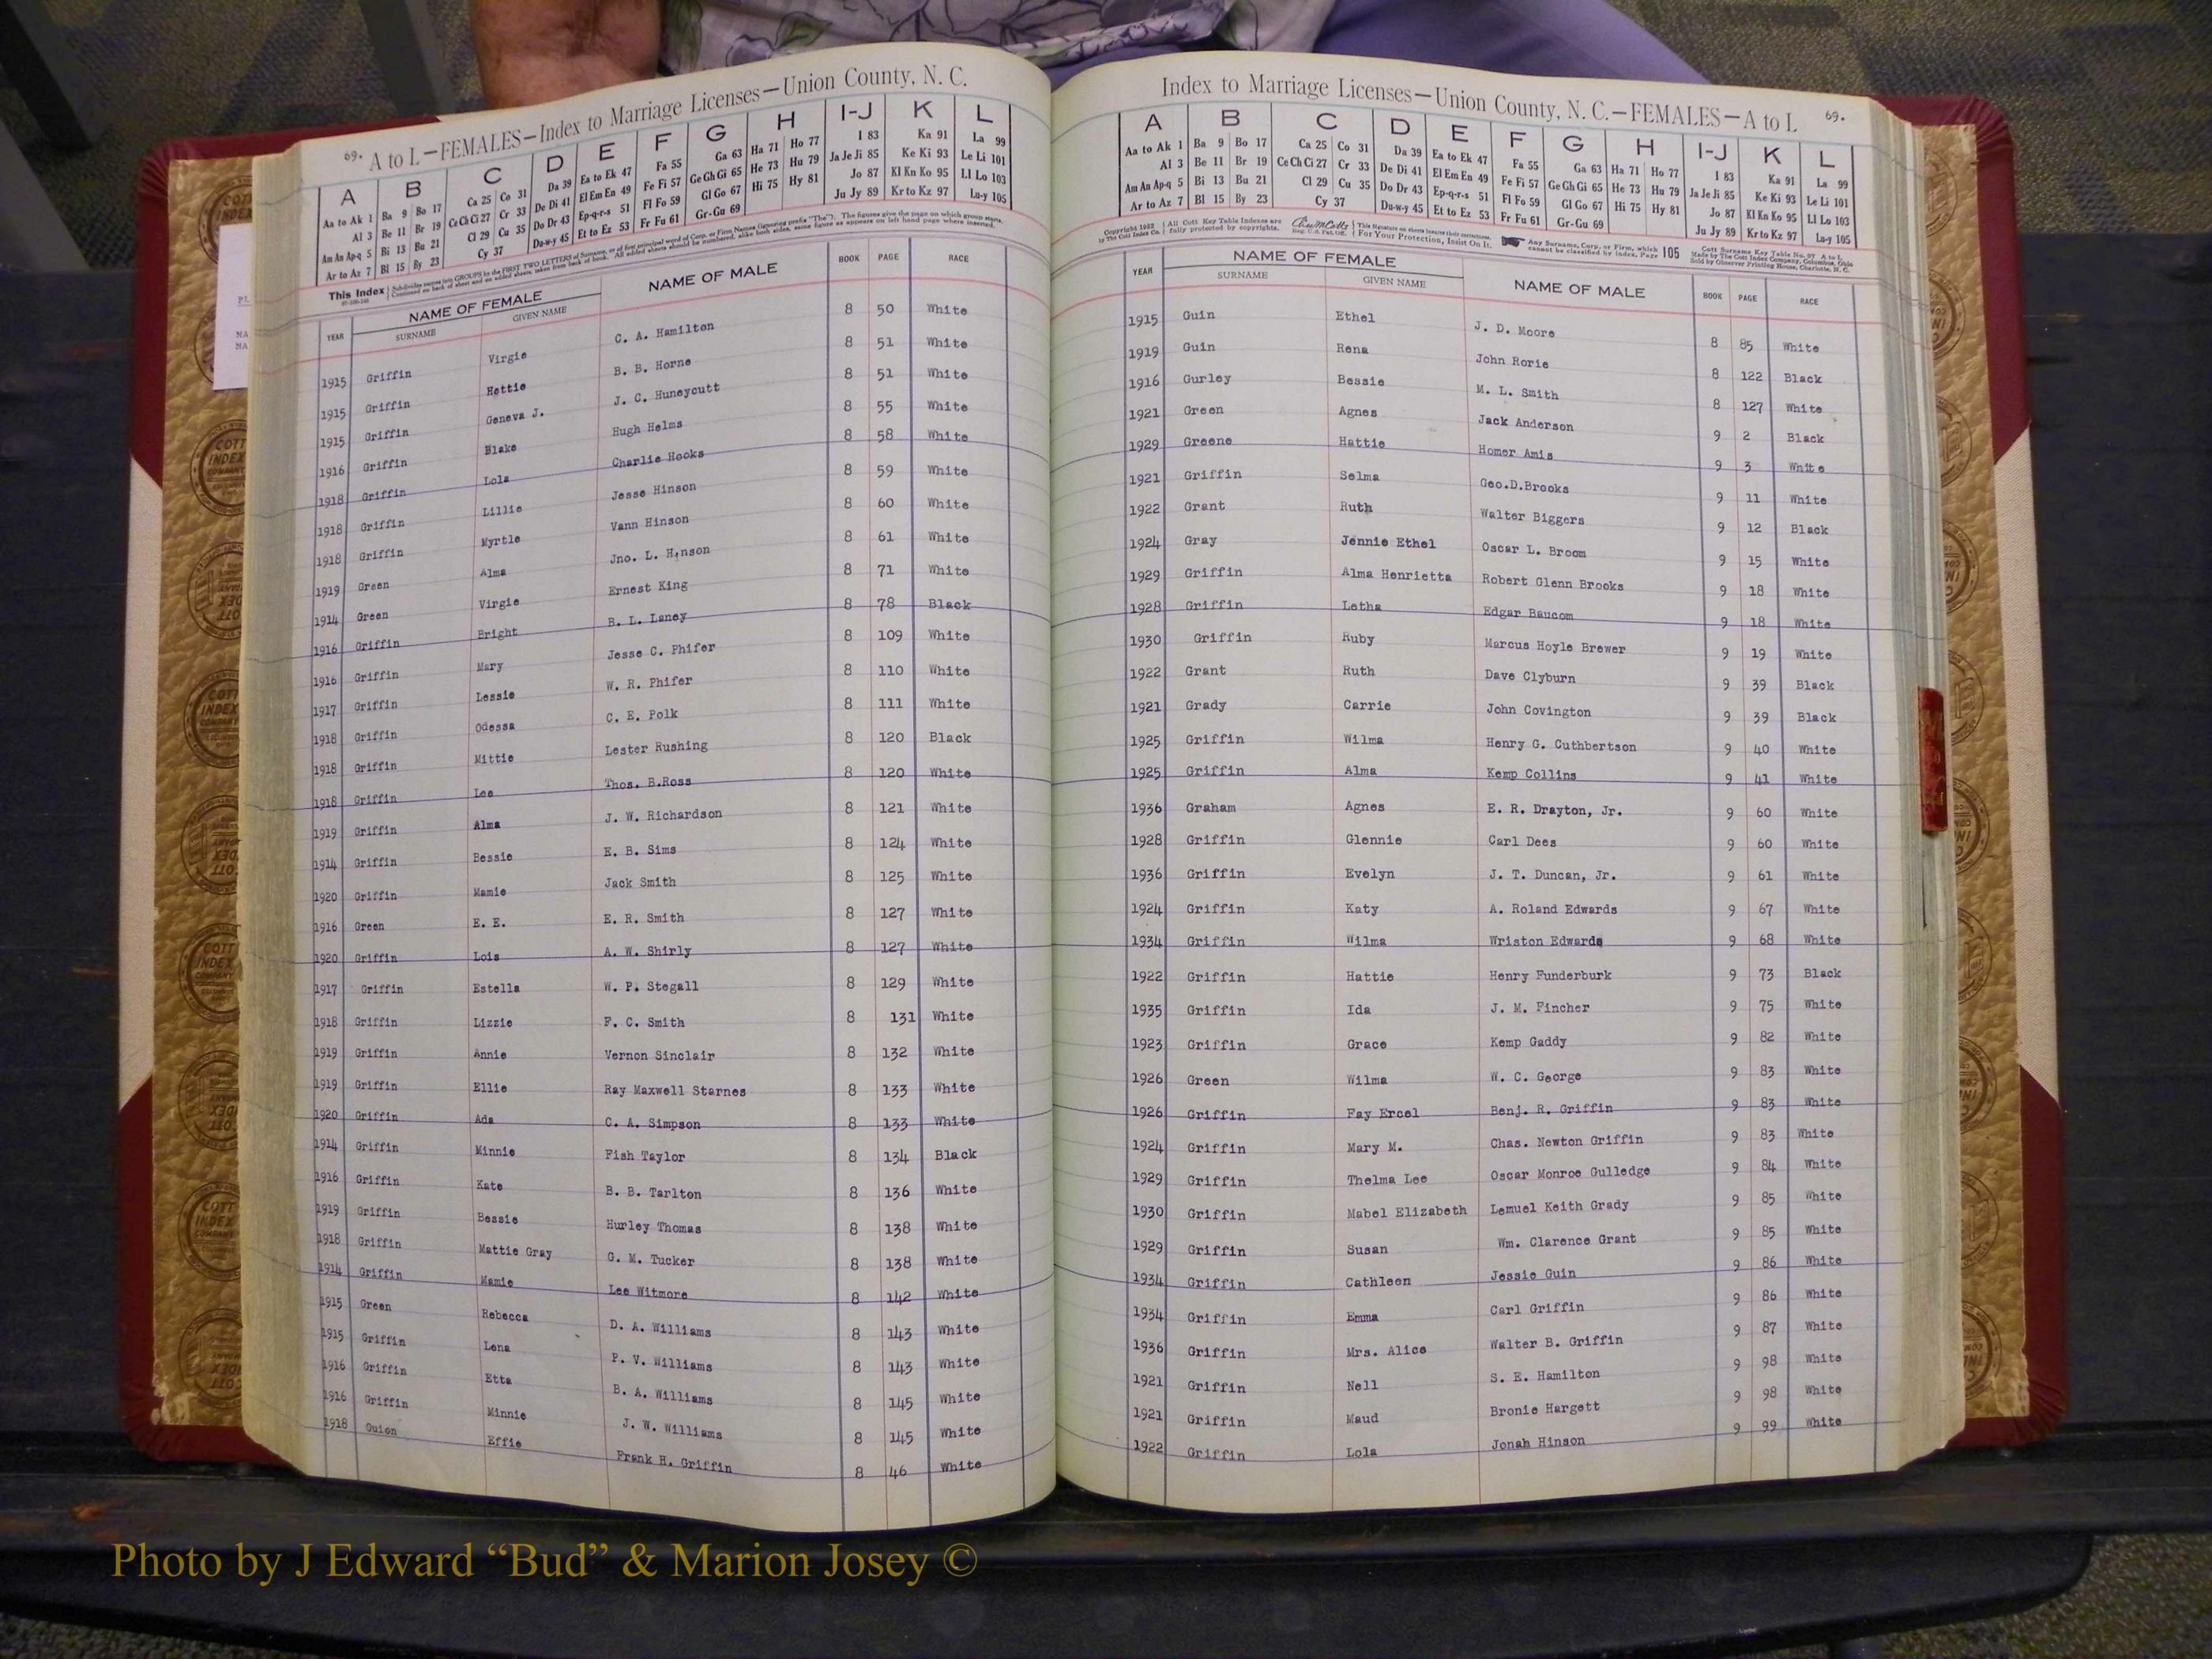 69. A to L—FEMALES—Index to Marriage Licenses—Union County, N. C.
A B C D E F G H I-J K L
Aa to Ak 1 Ba 9 Bo 17 Ca 25 Co 31 Da 39 Ea to Ek 47 Fa 55 Ga 63 Ha 71 Ho 77 I 83 Ka 91 La 99
Al 3 Be 11 Br 19 Ce Ch Ci 27 Cr 33 De Di 41 El Em En 49 Fe Fi 57 Ge Gh Gi 65 He 73 Hu 79 Ja Je Ji 85 Ke Ki 93 Le Li 101
Am An Ap-q 5 Bi 13 Bu 21 Cl 29 Cu 35 Do Dr 43 Ep-q-r-s 51 Fl Fo 59 Gl Go 67 Hi 75 Hy 81 Jo 87 Kl Kn Ko 95 Ll Lo 103
Ar to Az 7 Bl 15 By 23 Cy 37 Du-w-y 45 Et to Ez 53 Fr Fu 61 Gr-Gu 69 Ju Jy 89 Kr to Kz 97 Lu-y 105
This Index Subdivides names into GROUPS by the FIRST TWO LETTERS of Surname, or of first principal word of Corp. or Firm Names (ignoring prefix "The"). The figures give the page on which group starts.
Continued on back of sheet and on added sheets, taken from back of book. All added sheets should be numbered, alike both sides, same figure as appears on left hand page where inserted.
YEAR NAME OF FEMALE NAME OF MALE BOOK PAGE RACE
SURNAME GIVEN NAME
1915 Griffin Virgie C. A. Hamilton 8 50 White
1915 Griffin Hettie B. B. Horne 8 51 White
1915 Griffin Geneva J. J. C. Huneycutt 8 51 White
1916 Griffin Blake Hugh Helms 8 55 White
1918 Griffin Lola Charlie Hooks 8 58 White
1918 Griffin Lillie Jesse Hinson 8 59 White
1918 Griffin Myrtle Vann Hinson 8 60 White
1919 Green Alma Jno. L. Hinson 8 61 White
1914 Green Virgie Ernest King 8 71 White
1916 Griffin Bright B. L. Laney 8 78 Black
1916 Griffin Mary Jesse C. Phifer 8 109 White
1917 Griffin Lessie W. R. Phifer 8 110 White
1918 Griffin Odessa C. E. Polk 8 111 White
1918 Griffin Mittie Lester Rushing 8 120 Black
1918 Griffin Lee Thos. B.Ross 8 120 White
1919 Griffin Alma J. W. Richardson 8 121 White
1914 Griffin Bessie E. B. Sims 8 124 White
1920 Griffin Mamie Jack Smith 8 125 White
1916 Green E. E. E. R. Smith 8 127 White
1920 Griffin Lois A. W. Shirly 8 127 White
1917 Griffin Estella W. P. Stegall 8 129 White
1918 Griffin Lizzie F. C. Smith 8 131 White
1919 Griffin Annie Vernon Sinclair 8 132 White
1919 Griffin Ellie Ray Maxwell Starnes 8 133 White
1920 Griffin Ada C. A. Simpson 8 133 White
1914 Griffin Minnie Fish Taylor 8 134 Black
1916 Griffin Kate B. B. Tarlton 8 136 White
1919 Griffin Bessie Hurley Thomas 8 138 White
1918 Griffin Mattie Gray G. M. Tucker 8 138 White
1914 Griffin Mamie Lee Witmore 8 142 White
1915 Green Rebecca D. A. Williams 8 143 White
1915 Griffin Lena P. V. Williams 8 143 White
1916 Griffin Etta B. A. Williams 8 145 White
1916 Griffin Minnie J. W. Williams 8 145 White
1918 Guion Effie Frank H. Griffin 8 46 White
Index to Marriage Licenses—Union County, N. C.—FEMALES—A to L 69.
A B C D E F G H I-J K L
Aa to Ak 1 Ba 9 Bo 17 Ca 25 Co 31 Da 39 Ea to Ek 47 Fa 55 Ga 63 Ha 71 Ho 77 I 83 Ka 91 La 99
Al 3 Be 11 Br 19 Ce Ch Ci 27 Cr 33 De Di 41 El Em En 49 Fe Fi 57 Ge Gh Gi 65 He 73 Hu 79 Ja Je Ji 85 Ke Ki 93 Le Li 101
Am An Ap-q 5 Bi 13 Bu 21 Cl 29 Cu 35 Do Dr 43 Ep-q-r-s 51 Fl Fo 59 Gl Go 67 Hi 75 Hy 81 Jo 87 Kl Kn Ko 95 Ll Lo 103
Ar to Az 7 Bl 15 By 23 Cy 37 Du-w-y 45 Et to Ez 53 Fr Fu 61 Gr-Gu 69 Ju Jy 89 Kr to Kz 97 Lu-y 105
Copyright 1932 All Cott Key Table Indexes are This Signature on sheets insures their correctness. Any Surname, Corp. or Firm, which Cott Surname Key Table No. 97 A to L
by The Cott Index Co. fully protected by copyrights. For Your Protection, Insist On It. cannot be classified by Index, Page 105 Made by The Cott Index Company, Columbus, Ohio
Sold by Observer Printing House, Charlotte, N. C.
YEAR NAME OF FEMALE NAME OF MALE BOOK PAGE RACE
SURNAME GIVEN NAME
1915 Guin Ethel J. D. Moore 8 85 White
1919 Guin Rena John Rorie 8 122 Black
1916 Gurley Bessie M. L. Smith 8 127 White
1921 Green Agnes Jack Anderson 9 2 Black
1929 Greene Hattie Homer Amis 9 3 White
1921 Griffin Selma Geo.D.Brooks 9 11 White
1922 Grant Ruth Walter Biggers 9 12 Black
1924 Gray Jennie Ethel Oscar L. Broom 9 15 White
1929 Griffin Alma Henrietta Robert Glenn Brooks 9 18 White
1928 Griffin Letha Edgar Baucom 9 18 White
1930 Griffin Ruby Marcus Hoyle Brewer 9 19 White
1922 Grant Ruth Dave Clyburn 9 39 Black
1921 Grady Carrie John Covington 9 39 Black
1925 Griffin Wilma Henry G. Cuthbertson 9 40 White
1925 Griffin Alma Kemp Collins 9 41 White
1936 Graham Agnes E. R. Drayton, Jr. 9 60 White
1928 Griffin Glennie Carl Dees 9 60 White
1936 Griffin Evelyn J. T. Duncan, Jr. 9 61 White
1924 Griffin Katy A. Roland Edwards 9 67 White
1934 Griffin Wilma Wriston Edwards 9 68 White
1922 Griffin Hattie Henry Funderburk 9 73 Black
1935 Griffin Ida J. M. Fincher 9 75 White
1923 Griffin Grace Kemp Gaddy 9 82 White
1926 Green Wilma W. C. George 9 83 White
1926 Griffin Fay Ercel Benj. R. Griffin 9 83 White
1924 Griffin Mary M. Chas. Newton Griffin 9 83 White
1929 Griffin Thelma Lee Oscar Monroe Gulledge 9 84 White
1930 Griffin Mabel Elizabeth Lemuel Keith Grady 9 85 White
1929 Griffin Susan Wm. Clarence Grant 9 85 White
1934 Griffin Cathleen Jessie Guin 9 86 White
1934 Griffin Emma Carl Griffin 9 86 White
1936 Griffin Mrs. Alice Walter B. Griffin 9 87 White
1921 Griffin Nell S. E. Hamilton 9 98 White
1921 Griffin Maud Bronie Hargett 9 98 White
1922 Griffin Lola Jonah Hinson 9 99 White
Photo by J Edward “Bud” & Marion Josey ©